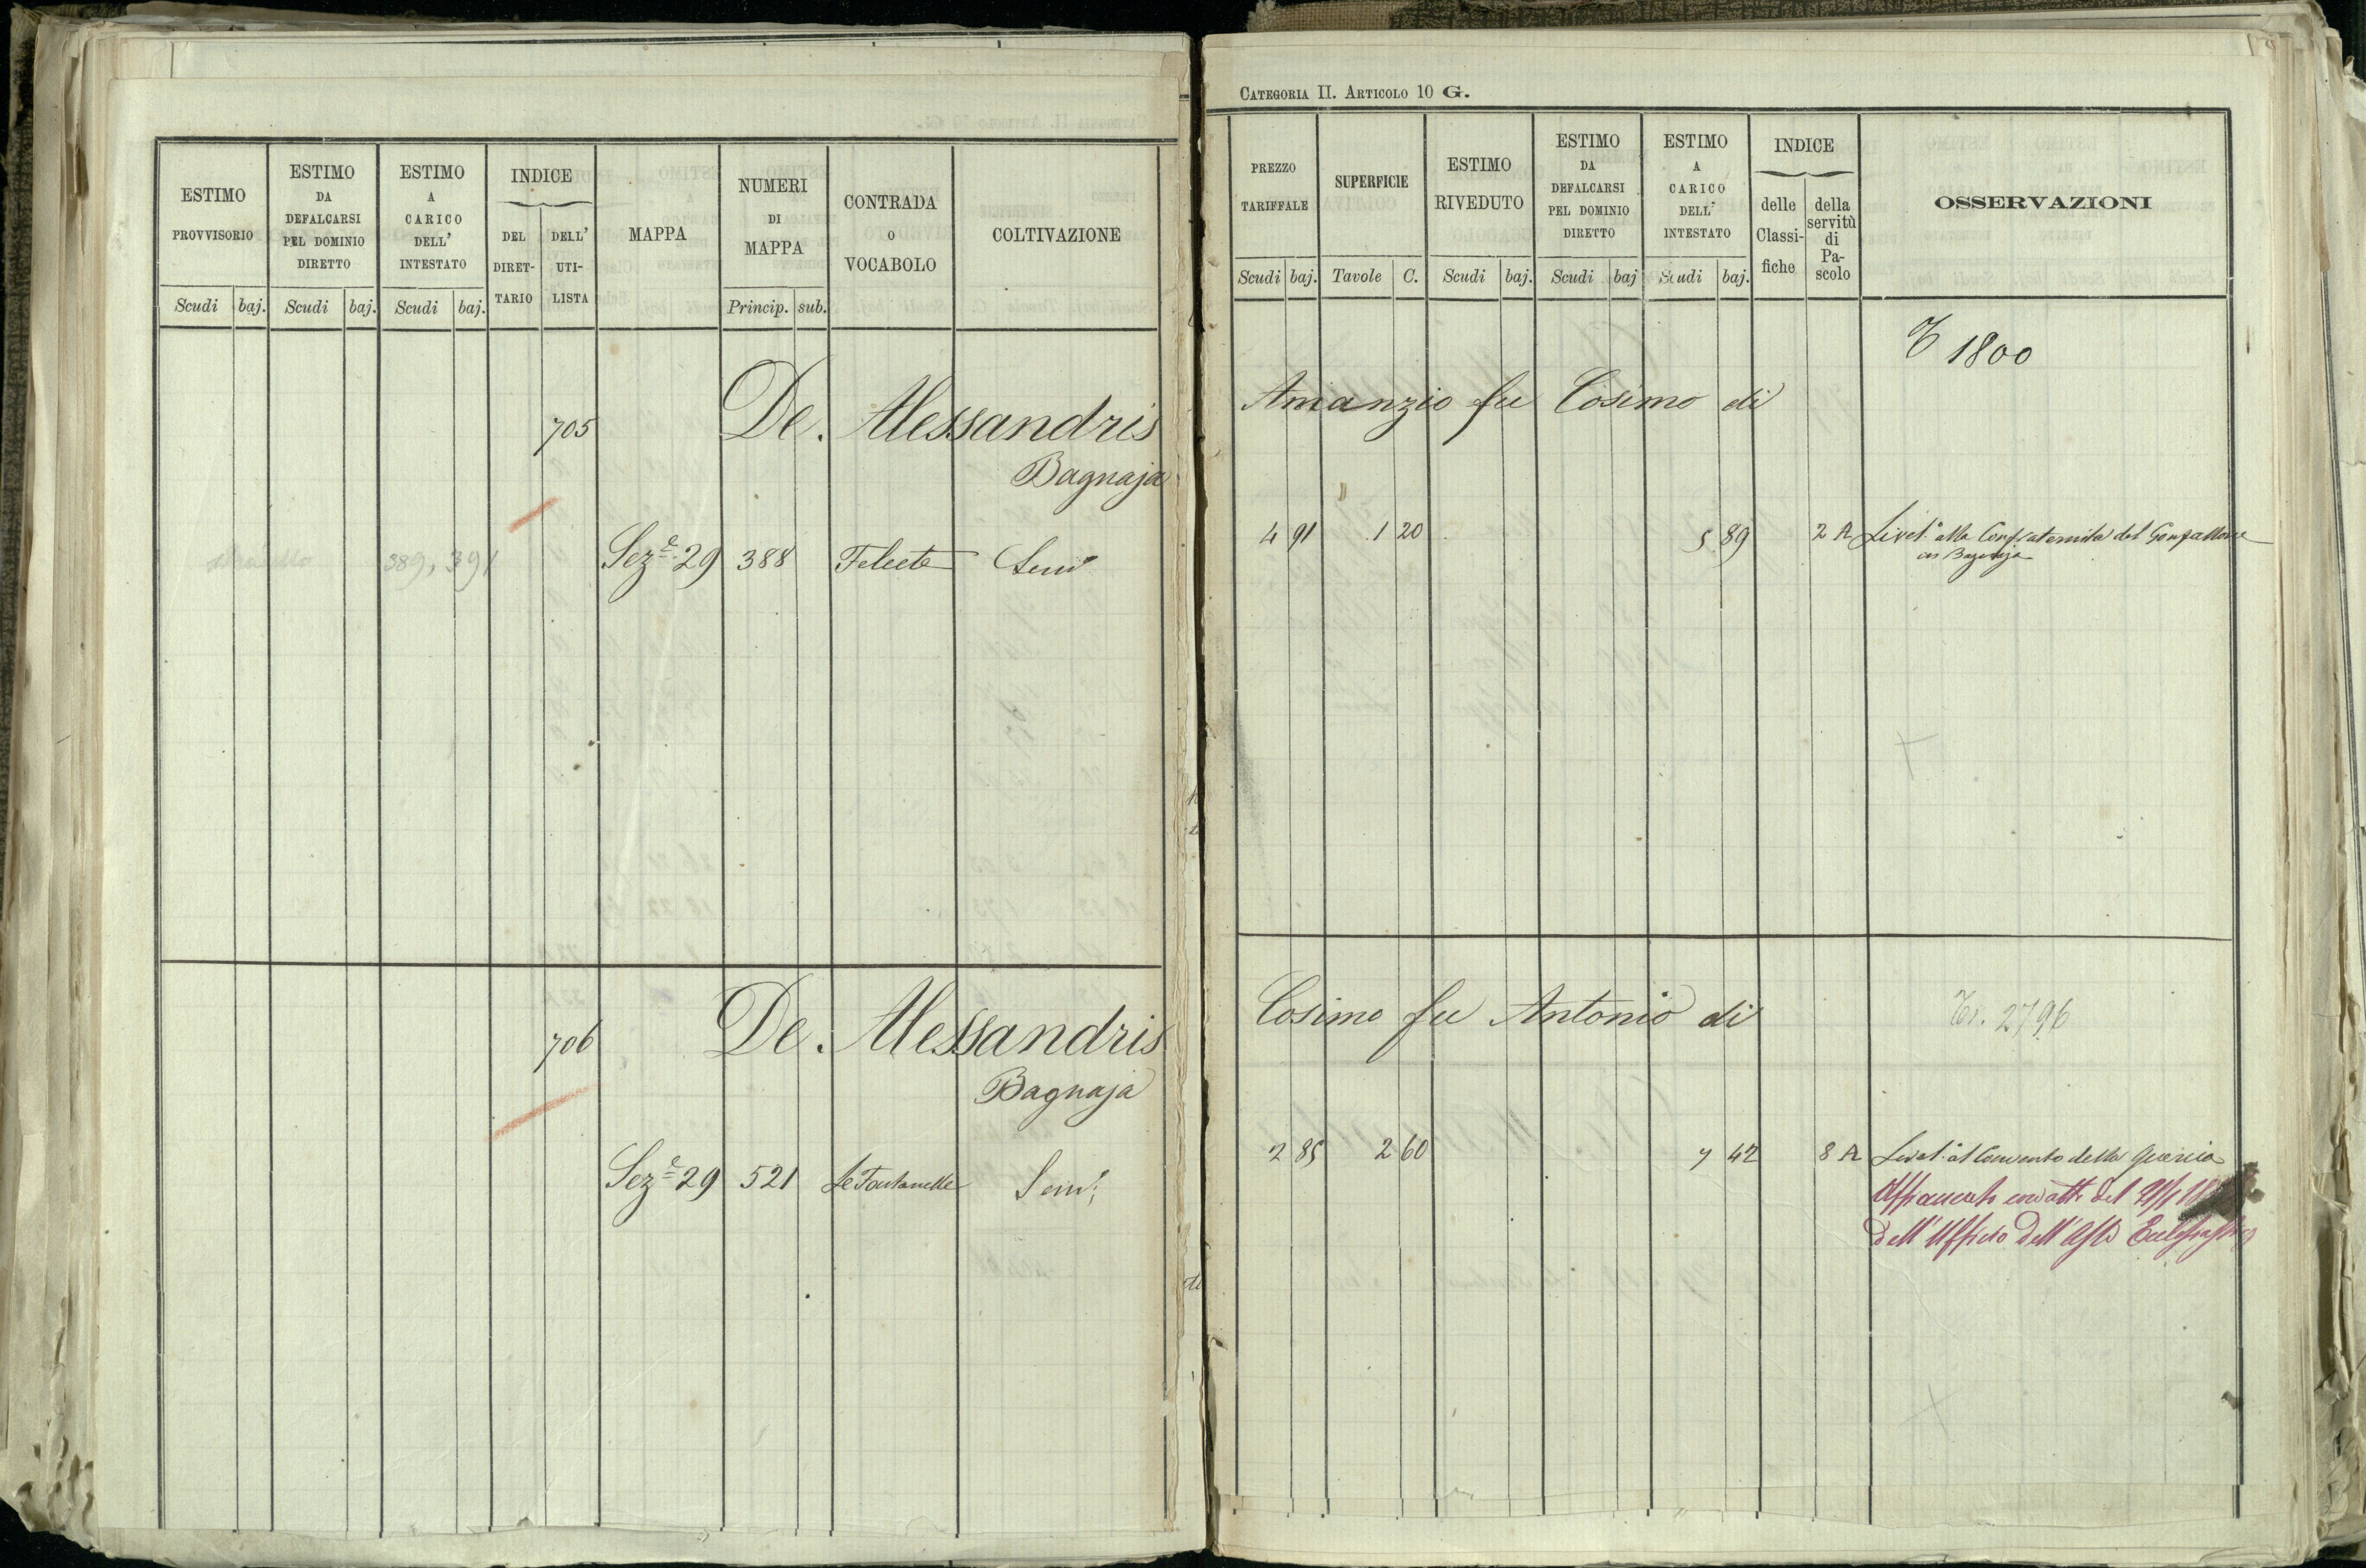 CATEGORIA II. ARTICOLO 10 G.
ESTIMO PROVVISORIO
Scudi baj.
ESTIMO DA DEFALCARSI PEL DOMINIO DIRETTO
Scudi baj.
ESTIMO A CARICO DELL' INTESTATO
Scudi baj.
INDICE
DEL DIRET-TARIO
DELL' UTI-LISTA
MAPPA
NUMERI DI MAPPA
Princip. sub.
CONTRADA O VOCABOLO
COLTIVAZIONE
PREZZO TARIFFALE
Scudi baj.
SUPERFICIE
Tavole C.
ESTIMO RIVEDUTO
Scudi baj.
ESTIMO DA DEFALCARSI PEL DOMINIO DIRETTO
Scudi baj
ESTIMO A CARICO DELL' INTESTATO
Scudi baj.
INDICE
delle Classi-fiche
della servitù di Pa-scolo
OSSERVAZIONI
1800
705 De. Alessandris Amanzio fu Cosimo di
Bagnaja
389, 391 Sez.e 29 388 Semi.o 4 91 1 20 5 89 2 A Livel.o alla Confraternita del Gonfallone
di Bagnaja
706 De. Alessandris Cosimo fu Antonio di Tr. 2796
Bagnaja
Sez.e 29 521 Le Fontanelle Semi; 2 85 2 60 7 42 8 A Livel.o al Convento della Quercia
con atto del
dell'Ufficio dell'Asse Ecclesiastico